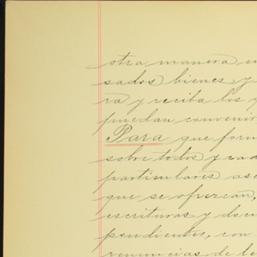 otra manera en
sados bienes y
ra y reciba los
puedan convenir
Para que form
sobre todos y cad
particulares as
que se ofrezcan,
escrituras y do
pendientes, con
renuncias de le